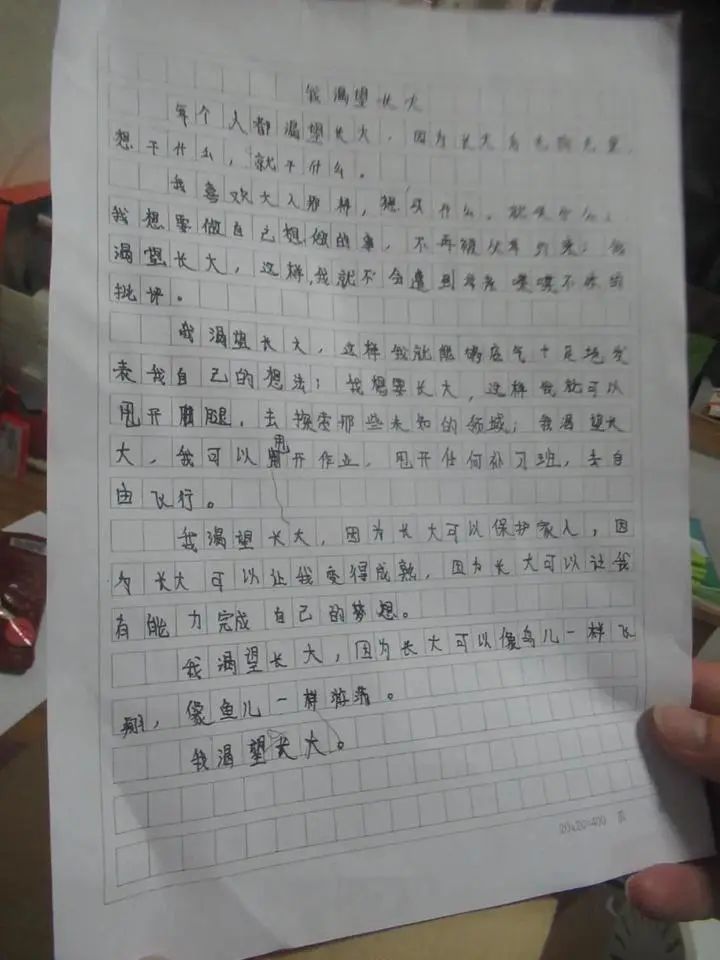 我渴望长大
每个人都渴望长大，因为长大后无拘无束，
想干什么，就干什么。
我喜欢大人那样，想买什么，就买什么；
我想要做自己想做的事，不再被父母约束；我
渴望长大，这样，我就不会遭到老爸喋喋不休的
批评。
我渴望长大，这样我就能够底气十足地发
表我自己的想法；我想要长大，这样我就可以
甩开腿，去探索那些未知的领域；我渴望长
大，我可以甩开作业，甩开任何补习班，去自
由飞行。
我渴望长大，因为长大可以保护家人，因
为长大可以让我变得成熟，因为长大可以让我
有能力完成自己的梦想。
我渴望长大，因为长大可以像鸟儿一样飞
翔，像鱼儿一样游。
我渴望长大。
20×20=400